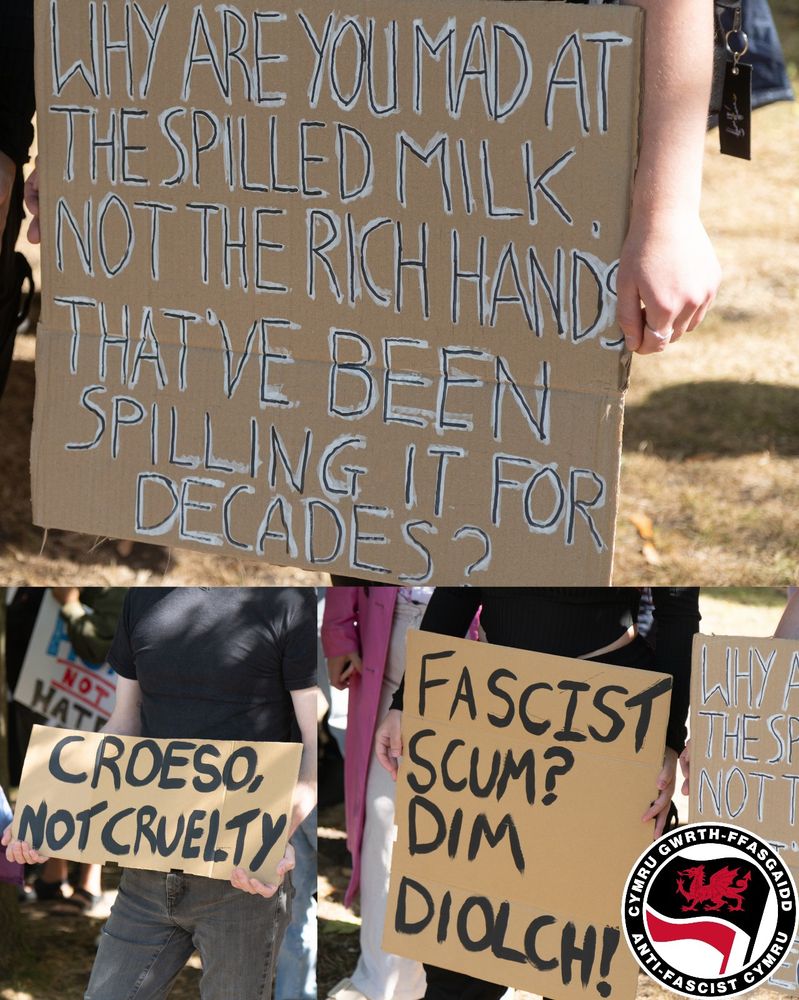 WHY ARE YOU MAD AT
THE SPILLED MILK.
NOT THE RICH HANDS
THAT'VE BEEN
SPILLING IT FOR
DECADES?
NOT
HATE
CROESO,
NOT CRUELTY
FASCIST
SCUM?
DIM
DIOLCH!
WHY A
THE SP
NOT T
CYMRU GWRTH-FFASGAIDD
ANTI-FASCIST CYMRU